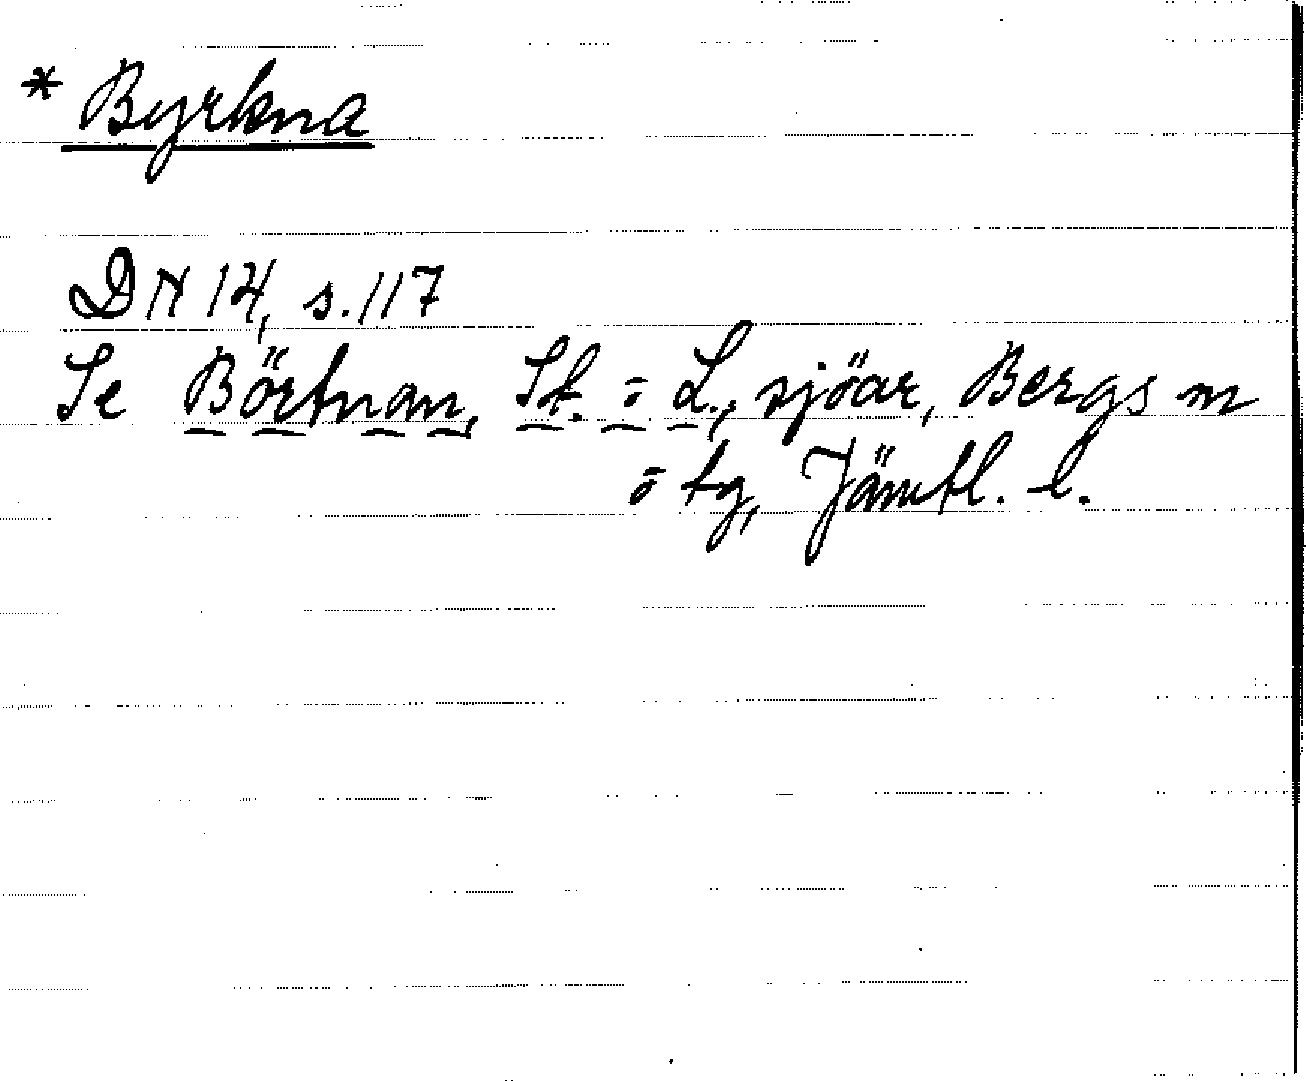 * Byrkna
DN 14, s. 117
Se Börtnan, St. o L., sjöar, Bergs sn
o tg, Jämtl. l.